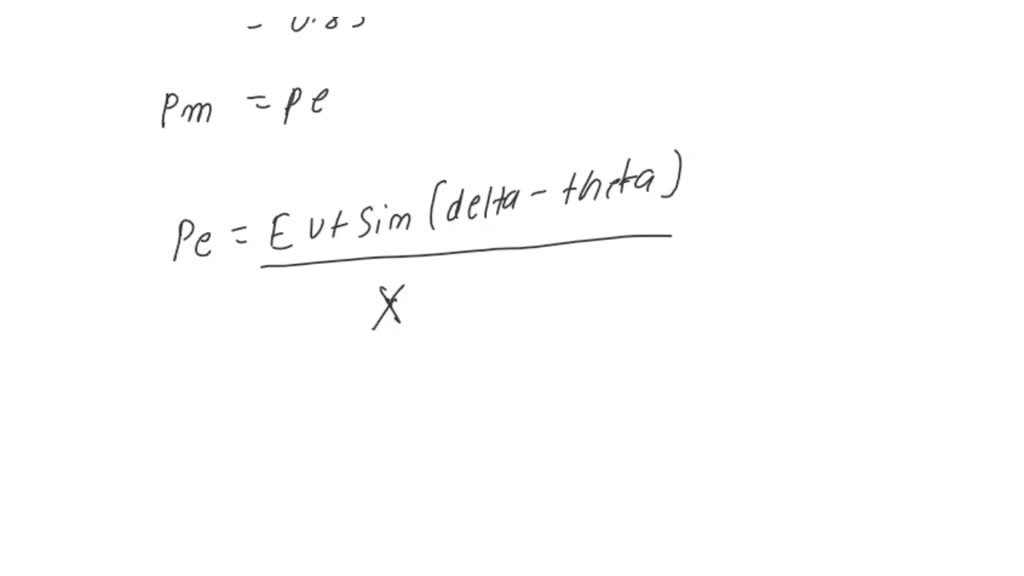 Pm = Pe
Pe = E Vt Sim (delta - theta)
X